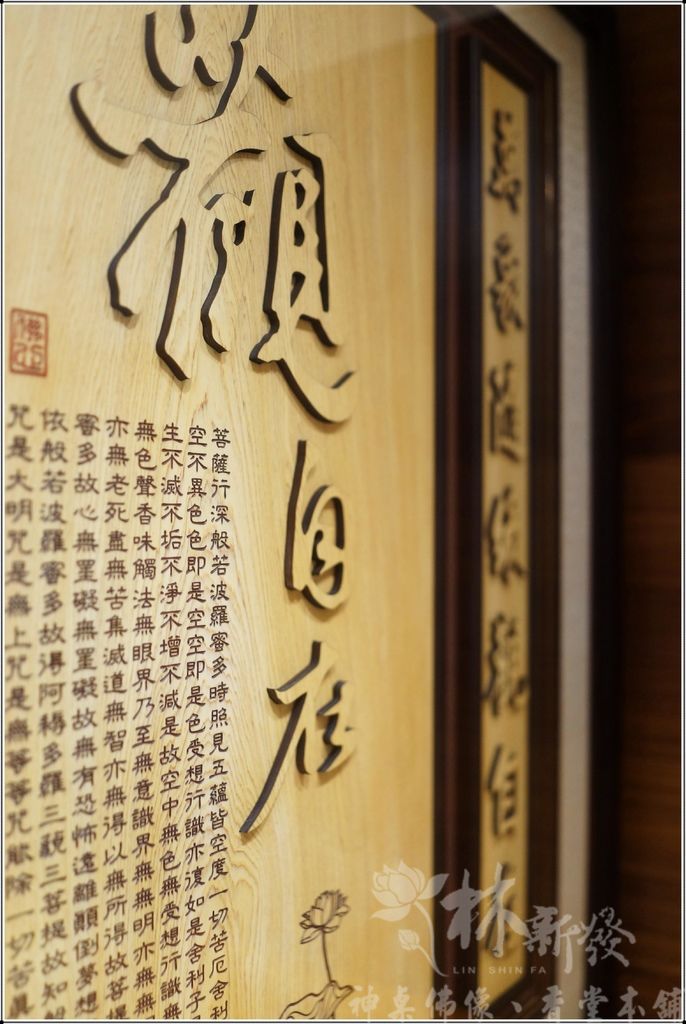 觀自在
菩薩行深般若波羅蜜多時照見五蘊皆空度一切苦厄舍利
空不異色色即是空空即是色受想行識亦復如是舍利子
生不滅不垢不淨不增不減是故空中無色無受想行識無
無色聲香味觸法無眼界乃至無意識界無無明亦無無
亦無老死盡無苦集滅道無智亦無得以無所得故菩提
蜜多故心無罣礙無罣礙故無有恐怖遠離顛倒夢想
依般若波羅蜜多故得阿耨多羅三藐三菩提故知般
咒是大明咒是無上咒是無等等咒能除一切苦真
林新發
LIN SHIN FA
神桌佛像、香堂本舖